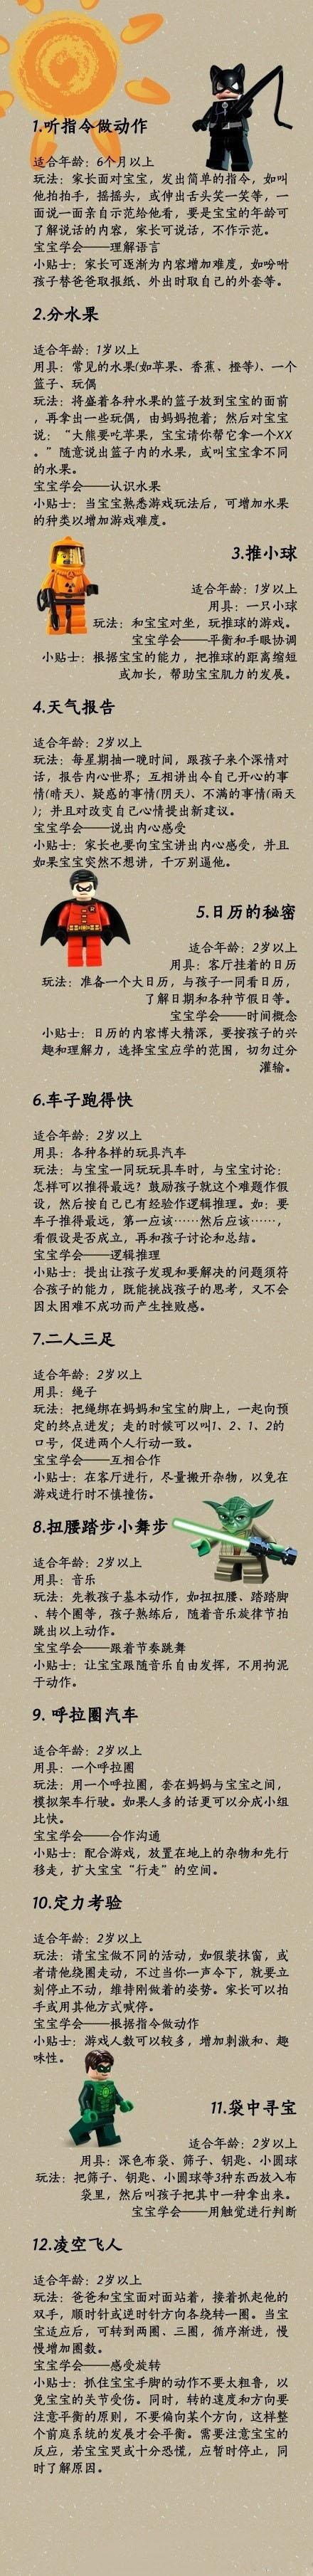 1.听指令做动作
适合年龄：6个月以上
玩法：家长面对宝宝，发出简单的指令，如叫
他拍拍手，摇摇头，或伸出舌头笑一笑等，一
面说一面亲自示范给他看，要是宝宝的年龄可
了解说话的内容，家长可说话，不作示范。
宝宝学会——理解语言
小贴士：家长可逐渐为内容增加难度，如吩咐
孩子替爸爸取报纸、外出时取自己的外套等。
2.分水果
适合年龄：1岁以上
用具：常见的水果(如苹果、香蕉、橙等)、一个
篮子、玩偶
玩法：将盛着各种水果的篮子放到宝宝的面前
，再拿出一些玩偶，由妈妈抱着；然后对宝宝
说：“大熊要吃苹果，宝宝请你帮它拿一个XX
。”随意说出篮子内的水果，或叫宝宝拿不同
的水果。
宝宝学会——认识水果
小贴士：当宝宝熟悉游戏玩法后，可增加水果
的种类以增加游戏难度。
3.推小球
适合年龄：1岁以上
用具：一只小球
玩法：和宝宝对坐，玩推球的游戏。
宝宝学会——平衡和手眼协调
小贴士：根据宝宝的能力，把推球的距离缩短
或加长，帮助宝宝肌力的发展。
4.天气报告
适合年龄：2岁以上
玩法：每星期抽一晚时间，跟孩子来个深情对
话，报告内心世界；互相讲出令自己开心的事
情(晴天)、疑惑的事情(阴天)、不满的事情(雨天
)；并且对改变自己心情提出新建议。
宝宝学会——说出内心感受
小贴士：家长也要向宝宝讲出内心感受，并且
如果宝宝突然不想讲，千万别逼他。
5.日历的秘密
适合年龄：2岁以上
用具：客厅挂着的日历
玩法：准备一个大日历，与孩子一同看日历，
了解日期和各种节假日等。
宝宝学会——时间概念
小贴士：日历的内容博大精深，要按孩子的兴
趣和理解力，选择宝宝应学的范围，切勿过分
灌输。
6.车子跑得快
适合年龄：2岁以上
用具：各种各样的玩具汽车
玩法：与宝宝一同玩玩具车时，与宝宝讨论：
怎样可以推得最远？鼓励孩子就这个难题作假
设，然后按自己已有经验作逻辑推理。如：要
车子推得最远，第一应该……然后应该……，
看假设是否成立，再和孩子讨论和总结。
宝宝学会——逻辑推理
小贴士：提出让孩子发现和要解决的问题须符
合孩子的能力，既能挑战孩子的思考，又不会
因太困难不成功而产生挫败感。
7.二人三足
适合年龄：2岁以上
用具：绳子
玩法：把绳绑在妈妈和宝宝的脚上，一起向预
定的终点进发；走的时候可以叫1、2、1、2的
口号，促进两个人行动一致。
宝宝学会——互相合作
小贴士：在客厅进行，尽量搬开杂物，以免在
游戏进行时不慎撞伤。
8.扭腰踏步小舞步
适合年龄：2岁以上
用具：音乐
玩法：先教孩子基本动作，如扭扭腰、踏踏脚
、转个圈等，孩子熟练后，随着音乐旋律节拍
跳出以上动作。
宝宝学会——跟着节奏跳舞
小贴士：让宝宝跟随音乐自由发挥，不用拘泥
于动作。
9. 呼拉圈汽车
适合年龄：2岁以上
用具：一个呼拉圈
玩法：用一个呼拉圈，套在妈妈与宝宝之间，
模拟架车行驶。如果人多的话更可以分成小组
比快。
宝宝学会——合作沟通
小贴士：配合游戏，放置在地上的杂物和先行
移走，扩大宝宝“行走”的空间。
10.定力考验
适合年龄：2岁以上
玩法：请宝宝做不同的活动，如假装抹窗，或
者请他绕圈走动，不过当你一声令下，就要立
刻停止不动，维持刚做着的姿势。家长可以拍
手或用其他方式喊停。
宝宝学会——根据指令做动作
小贴士：游戏人数可以较多，增加刺激和、趣
味性。
11.袋中寻宝
适合年龄：2岁以上
用具：深色布袋、筛子、钥匙、小圆球
玩法：把筛子、钥匙、小圆球等3种东西放入布
袋里，然后叫孩子把其中一种拿出来。
宝宝学会——用触觉进行判断
12.凌空飞人
适合年龄：2岁以上
玩法：爸爸和宝宝面对面站着，接着抓起他的
双手，顺时针或逆时针方向各绕转一圈。当宝
宝适应后，可转到两圈、三圈，循序渐进，慢
慢增加圈数。
宝宝学会——感受旋转
小贴士：抓住宝宝手脚的动作不要太粗鲁，以
免宝宝的关节受伤。同时，转的速度和方向要
注意平衡的原则，不要偏向某个方向，这样整
个前庭系统的发展才会平衡。需要注意宝宝的
反应，若宝宝哭或十分恐慌，应暂时停止，同
时了解原因。